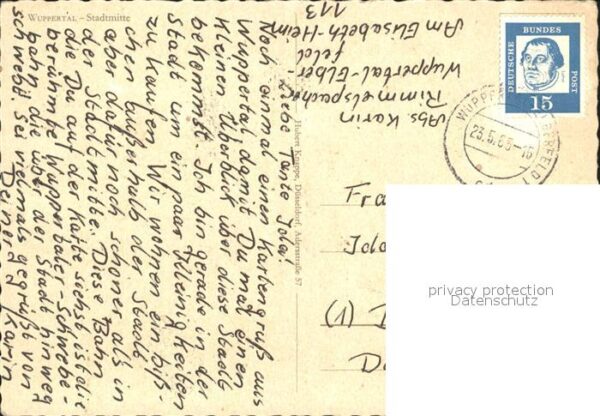 WUPPERTAL – Stadtmitte
Liebe Tante Jola!
Noch einmal einen Kartengruß aus
Wuppertal damit Du mal einen
kleinen Überblick über diese Stadt
bekommst. Ich bin gerade in der
Stadt um ein paar Kleinigkeiten
zu kaufen. Wir wohnen ein biß-
chen außerhalb der Stadt
aber dafür noch schöner als in
der Stadtmitte. Diese Bahn
die Du auf der Karte siehst, ist die
berühmte Wuppertaler-Schwebe-
bahn die über der Stadt hinweg
schwebt. Sei vielmals gegrüßt von
Deiner Karin
Hubert Knappe, Düsseldorf, Adersstraße 57
Abs. Karin
Rimmelspacher
Wuppertal-Elber-
feld
Am Elisabeth-Heim
113
DEUTSCHE BUNDES POST
15
WUPP
ERFELD 1
23.5.63-16
Fra
Jola
(1)
privacy protection
Datenschutz